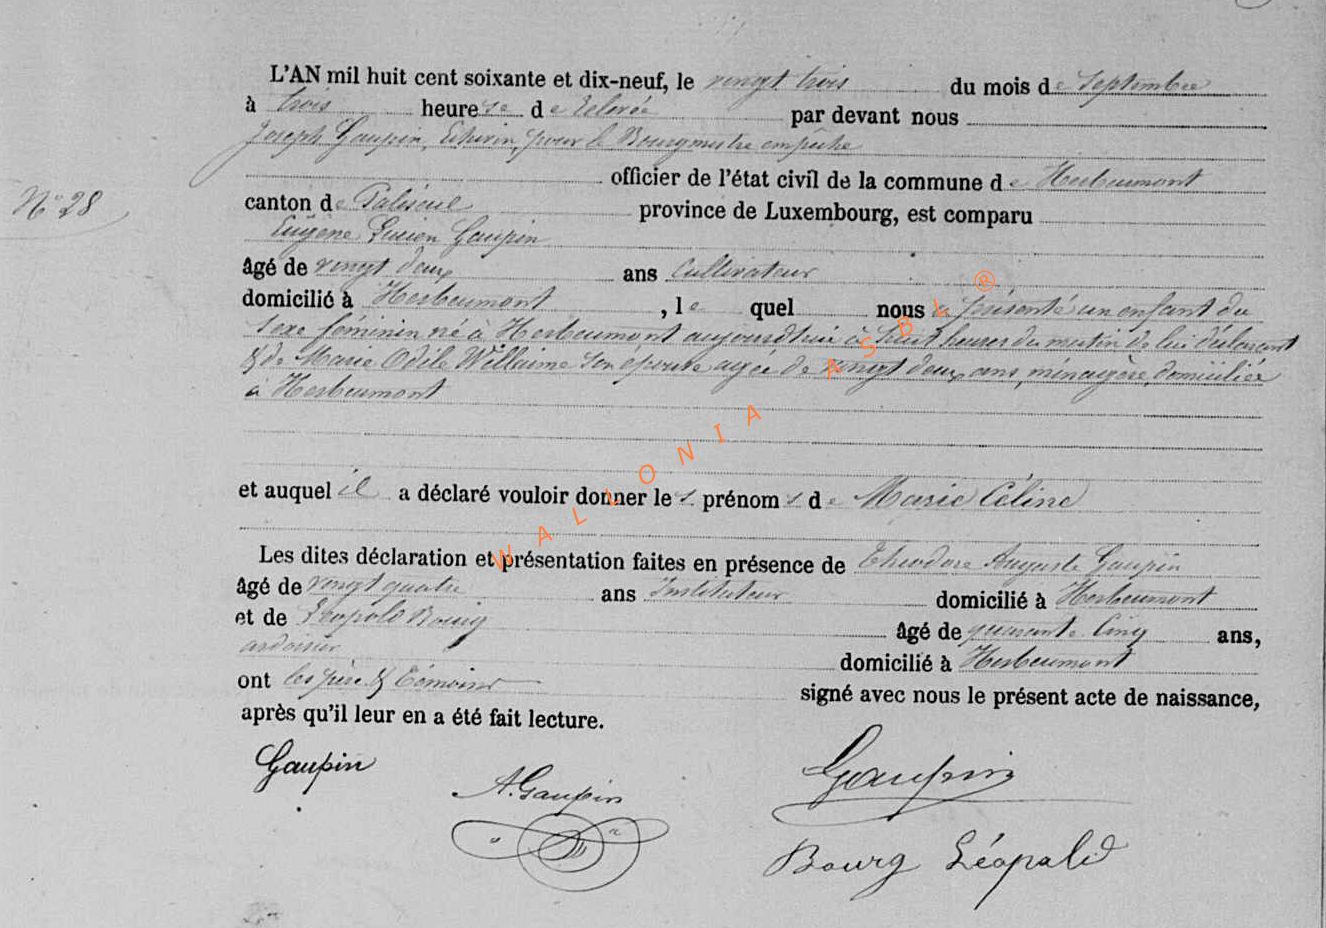 L'AN mil huit cent soixante et dix-neuf, le vingt trois du mois de Septembre
à trois heures de relevée par devant nous
Joseph Gaupin, Echevin, pour le Bourgmestre empêché
officier de l'état civil de la commune de Herbeumont
N° 28
canton de Paliseul province de Luxembourg, est comparu
Eugène Lucien Gaupin
âgé de vingt deux ans Cultivateur
domicilié à Herbeumont, le quel nous a présenté un enfant du
sexe féminin né à Herbeumont aujourd'hui à huit heures du matin de lui déclarant
& de Marie Odile Willaime son épouse agée de vingt deux ans, ménagère, domiciliée
à Herbeumont
et auquel il a déclaré vouloir donner les prénoms de Marie Céline
Les dites déclaration et présentation faites en présence de Théodore Auguste Gaupin
âgé de vingt quatre ans Instituteur domicilié à Herbeumont
et de Léopold Bourg âgé de quarante cinq ans,
ardoisier domicilié à Herbeumont
ont les père & témoins signé avec nous le présent acte de naissance,
après qu'il leur en a été fait lecture.
Gaupin A. Gaupin Gaupin
Bourg Léopold
WALLONIA ASBL ®